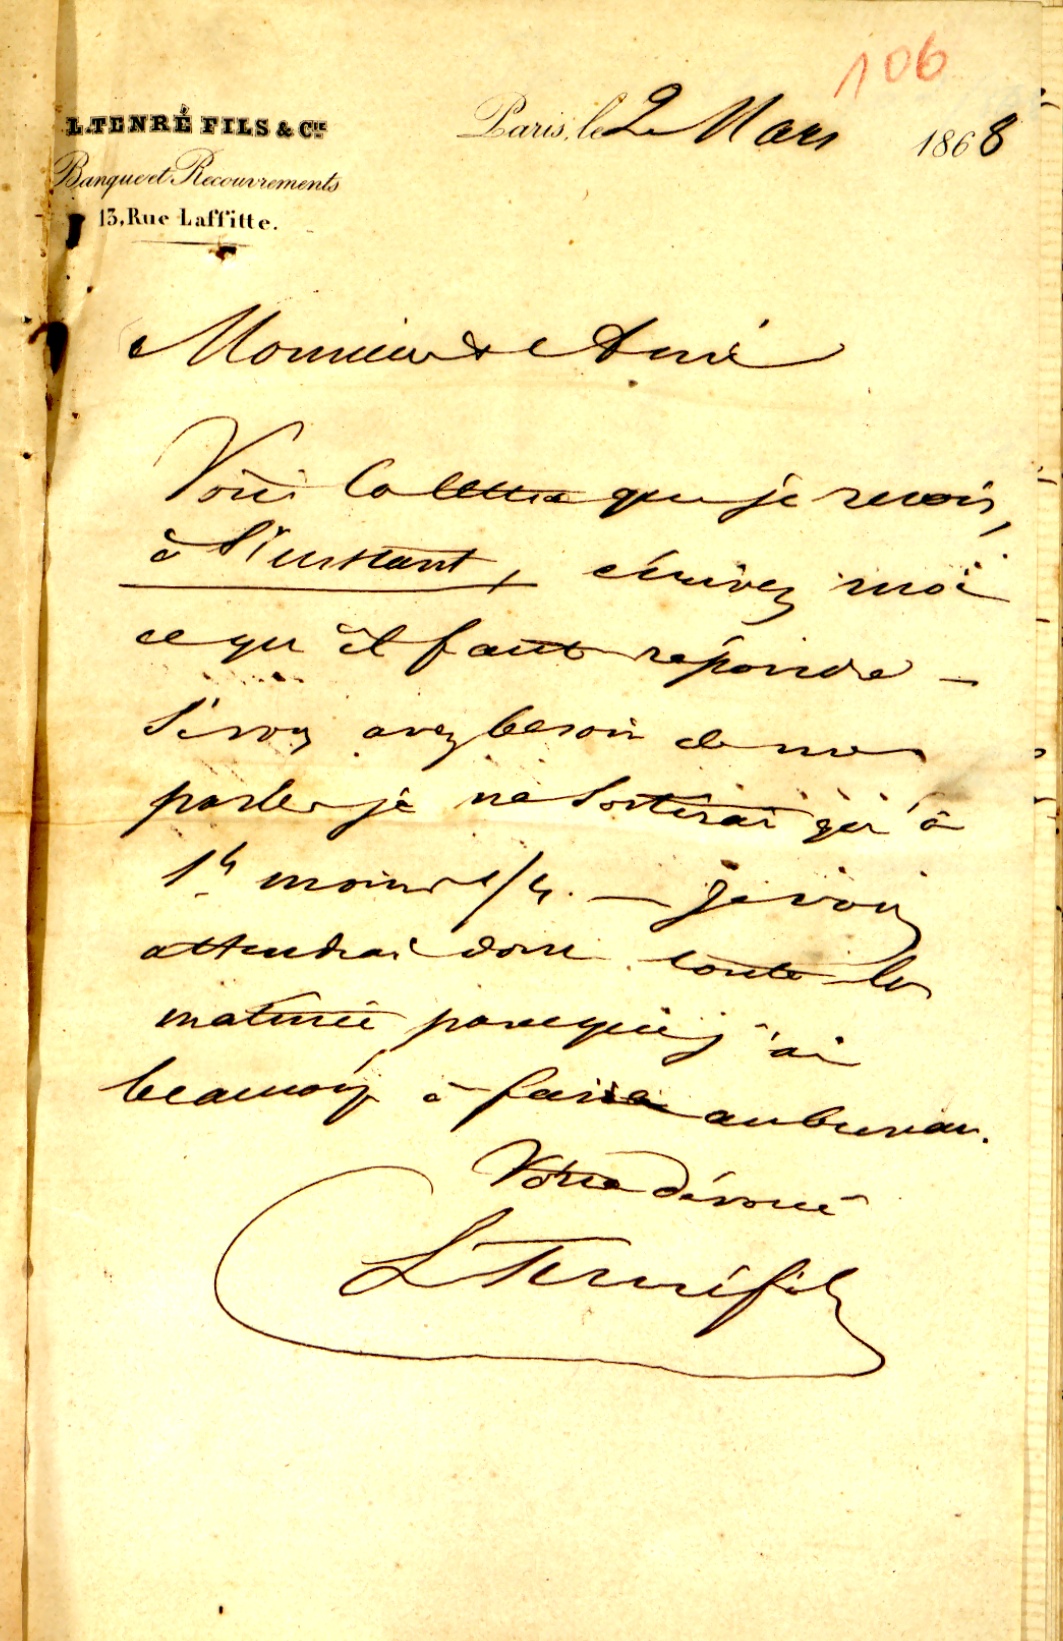 106
L. TENRÉ FILS & Cie
Paris, le 2 Mars 1868
Banque et Recouvrements
13, Rue Laffitte.
Monsieur & Ami
Voici la lettre que je reçois,
à l'instant, écrivez moi
ce qu'il faut répondre —
Si vous avez besoin de me
parler je ne sortirai qu'à
1h moins 1/4. — Je vous
attendrai donc toute la
matinée parceque j'ai
beaucoup à faire au bureau.
Votre dévoué
L Tenré fils